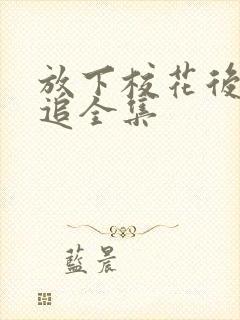 放下校花後
追全集
藍晨